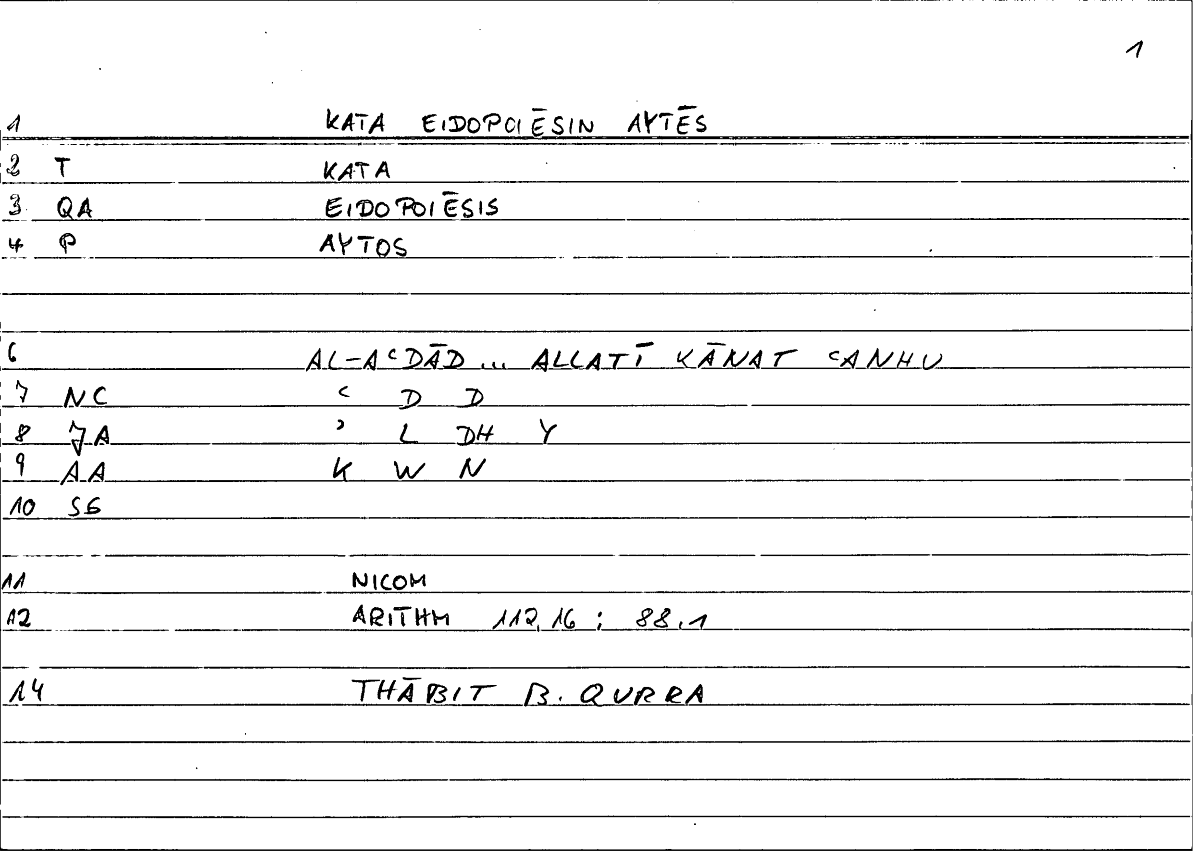 1
1 KATA EIDOPOIĒSIN AYTĒS
2 T KATA
3 QA EIDOPOIĒSIS
4 P AYTOS
6 AL-AʿDĀD ... ALLATĪ KĀNAT ʿANHU
7 NC ʿ D D
8 JA ʾ L DH Y
9 AA K W N
10 SG
11 NICOM
12 ARITHM 112,16 ; 88,1
14 THĀBIT B. QURRA